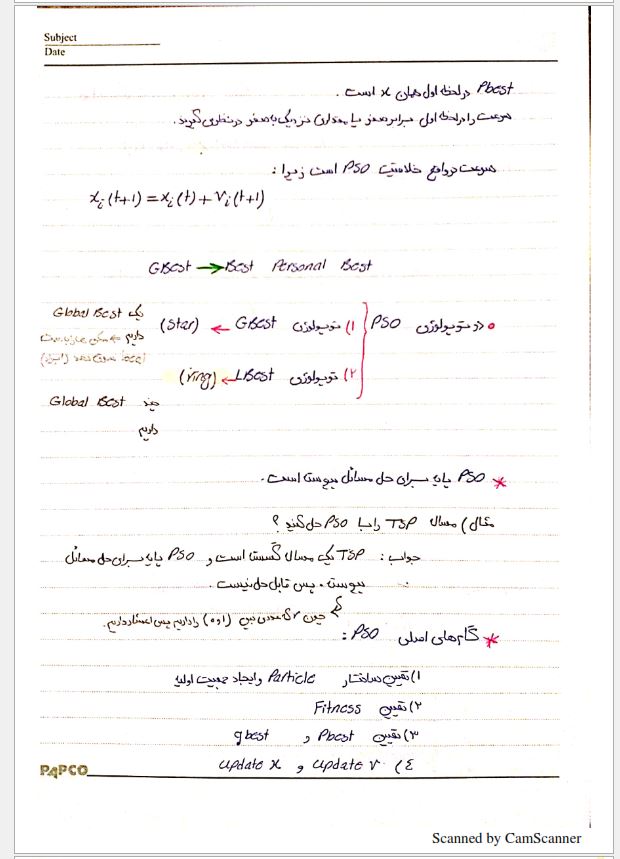 Subject
Date
Pbest در لحظه اول همان x است.
سرعت را در لحظه اول برابر صفر یا مقداری نزدیک به صفر در نظر می گیرند.
سرعت در واقع خلاصیت PSO است زیرا:
x_i(t+1) = x_i(t) + v_i(t+1)
GBest → Best Personal Best
• دو توپولوژی PSO
۱) توپولوژی GBest ← (Star) یک Global Best داریم
local
۲) توپولوژی LBest ← (ring) چند Global Best داریم
* PSO پایه برای حل مسائل پیوسته است.
مثال) مسأله TSP را با PSO حل کنید؟
جواب: TSP یک مسأله گسسته است و PSO پایه برای حل مسائل
پیوسته. پس قابل حل نیست.
چون r عددی بین (۱ و ۰) را داریم پس اعشار داریم.
* گام های اصلی PSO:
۱) تعیین ساختار Particle و ایجاد جمعیت اولیه
۲) تعیین Fitness
۳) تعیین Pbest و gbest
٤) update v و update x
PAPCO
Scanned by CamScanner